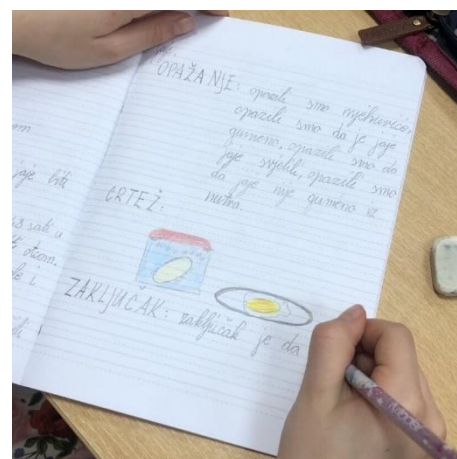 jaje.
OPAŽANJE: opazili smo mjehuriće,
opazili smo da je jaje
gumeno, opazili smo da
jaje svjetli, opazili smo
da jaje nije gumeno iz
nutra.
CRTEŽ:
ZAKLJUČAK: zaključak je da
jaje biti
48 sati u
octom.
i